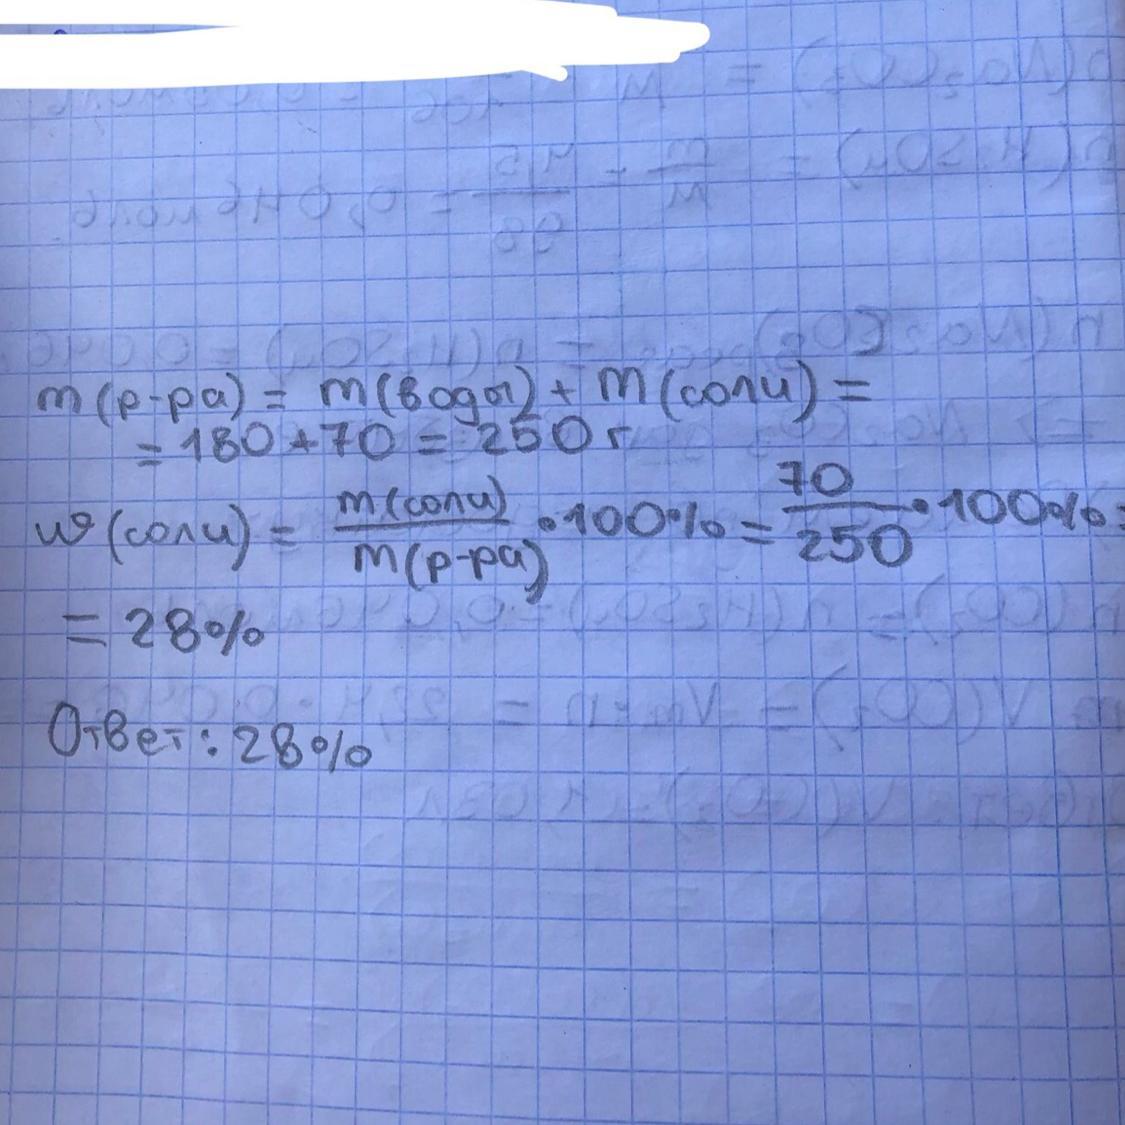 m(р-ра) = m(воды) + m(соли) =
= 180 + 70 = 250 г
w(соли) = m(соли) / m(р-ра) • 100% = 70 / 250 • 100% =
= 28%
Ответ: 28%